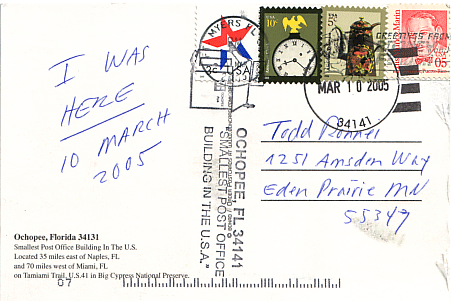 I WAS
HERE
10 MARCH
2005
FT MYERS FL
USA
10¢
USA
5¢
GREETINGS FROM
05
MAR 10 2005
34141
OCHOPEE, FL 34141
SMALLEST POST OFFICE
BUILDING IN THE U.S.A."
Todd
1251 Amsden Way
Eden Prairie MN
55347
Ochopee, Florida 34131
Smallest Post Office Building In The U.S.
Located 35 miles east of Naples, FL
and 70 miles west of Miami, FL
on Tamiami Trail, U.S.41 in Big Cypress National Preserve.
07